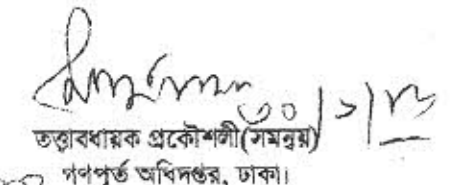 ৩০/১/১৩
তত্ত্বাবধায়ক প্রকৌশলী(সমন্বয়)
গণপূর্ত অধিদপ্তর, ঢাকা।